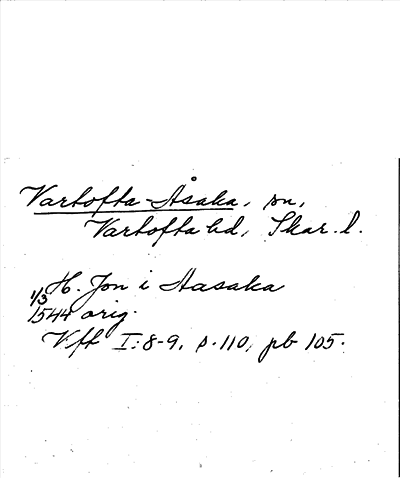 Vartofta-Åsaka, sn,
Vartofta hd, Skar. l.
H. Jon i Aasaka
1/3
1544 orig.
Vft I: 8-9, s. 110, pb 105.